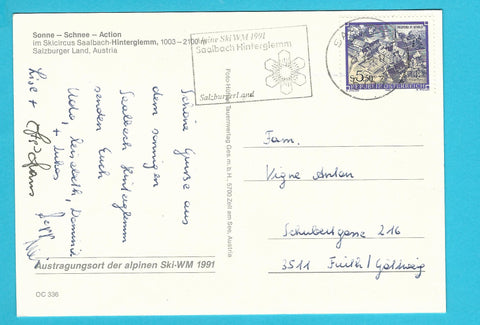 Sonne – Schnee – Action
im Skicircus Saalbach-Hinterglemm, 1003–2100 m
Salzburger Land, Austria
Alpine Ski WM 1991
Saalbach Hinterglemm
SalzburgerLand
S 5.50
REPUBLIK ÖSTERREICH
Schöne Grüße aus
dem sonnigen
Saalbach Hinterglemm
senden Euch
Udo, Liesbeth,
+ Lukas
Lise +
Hans
Sepp
Foto
Tauernverlag Ges.m.b.H., 5700 Zell am See, Austria
Fam.
Vigne Anton
Schubertgasse 216
3511 Furth/Göttweig
Austragungsort der alpinen Ski-WM 1991
OC 336